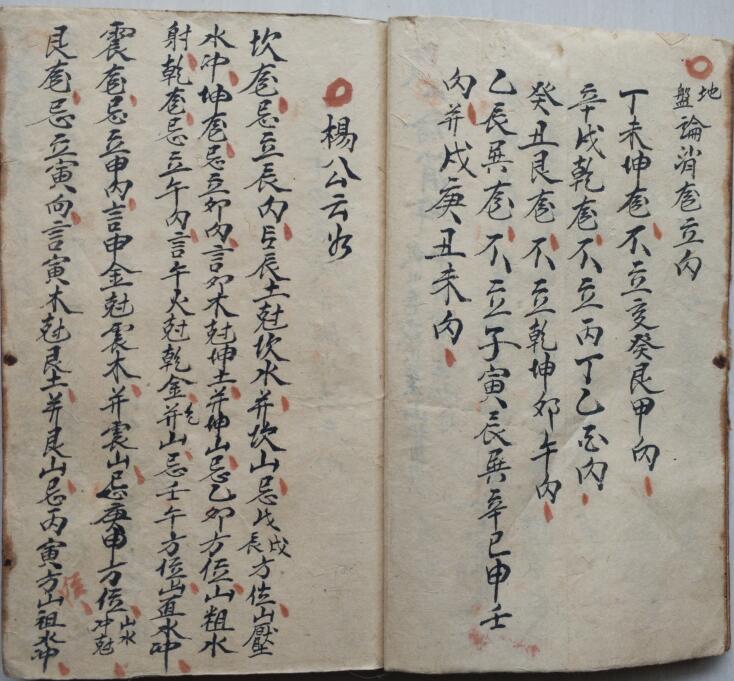 地盤論消龍立向
丁未坤龍不立亥癸艮甲向
辛戌乾龍不立丙丁乙酉向
癸丑艮龍不立乾坤卯午向
乙辰巽龍不立子寅辰巽辛巳申壬
向并戌庚丑未向
楊公云
坎龍忌立辰向言辰土尅坎水并坎山忌戊戌辰方位山壓
水冲坤龍忌立卯向言卯木尅坤土并坤山忌乙卯方位山粗水
射乾龍忌立午向言午火尅乾金并乾山忌壬午方位山直水冲
震龍忌立申向言申金尅震木并震山忌庚申方位山水冲尅
艮龍忌立寅向言寅木尅艮土并艮山忌丙寅方位山粗水冲